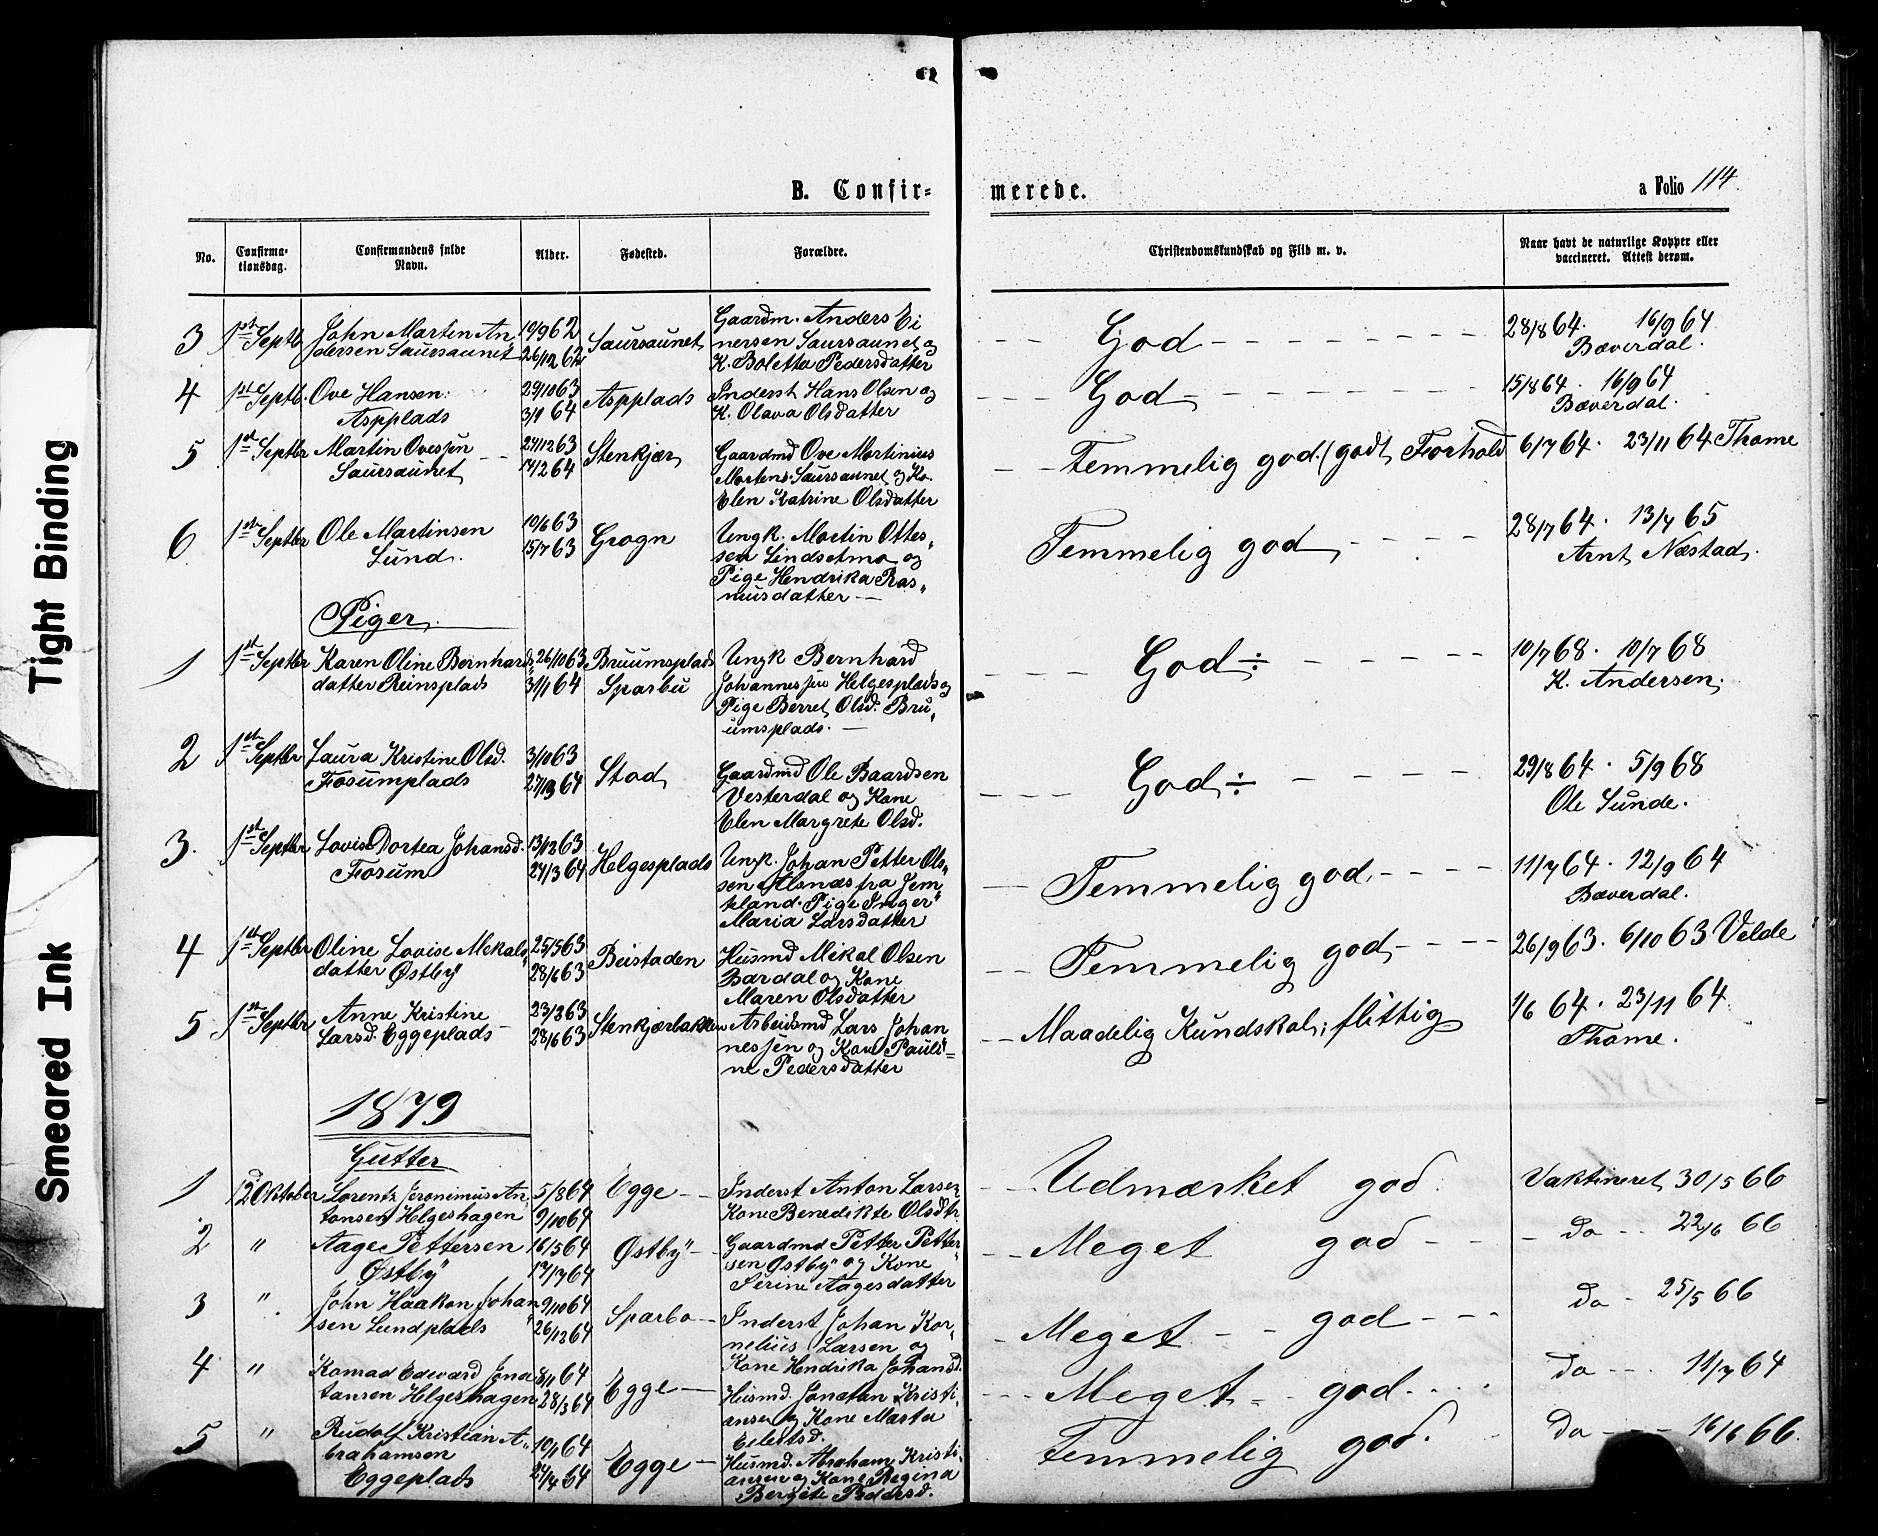 Tight Binding
Smeared Ink
B. Confir-
merede.
a Folio 114.
No.
Confirma-
tionsdag.
Confirmandens fulde
Navn.
Alder.
Fødested.
Forældre.
Christendomskundskab og Flid m. v.
Naar havt de naturlige Kopper eller
vaccineret. Attest derom.
3 1ste Septb John Martin An-
dersen Saursaunet
19/9 62
26/12 62
Saursaunet
Gaardm. Anders Ei
nersen Saursaunet og
K. Boletta Pedersdatter
God
28/8 64. 16/9 64
Bæverdal.
4 1ste Septb. Ove Hansen
Aspplads
29/10 63
3/1 64
Aspplads
Inderst Hans Olsen og
K. Olava Olsdatter
God
15/8 64. 16/9 64
Bæverdal.
5 1ste Septbr Martin Ovessen
Saursaunet
27/12 63
14/2 64
Stenkjær
Gaardmd Ove Martinius
Mortens. Saursaunet og Ko.
Elen Katrine Olsdatter
Temmelig god. (godt Forhold
6/7 64. 23/11 64 Thome
6 1ste Septbr Ole Martinsen
Lund.
10/6 63
15/7 63
Grogn
Ungk. Martin Ottes-
sen Lindsetmo og
Pige Hendrika Ras-
musdatter
Temmelig god
28/7 64. 13/7 65
Arnt Næstad.
Piger.
1 1ste Septbr Karen Oline Bernhards
datter Reinsplads
26/10 63
31/1 64
Bruumsplads
Sparbu
Ungk Bernhard
Johannessen Helgesplads og
Pige Berret Olsd. Bru-
umsplads.
God ÷
10/7 68. 10/7 68
K. Andersen.
2 1ste Septbr Laura Kristine Olsd.
Fosumplads
3/10 63
27/3 64
Stod
Gaardmd Ole Baardsen
Vesterdal og Kone
Elen Margrete Olsd.
God ÷
29/8 64. 5/9 68
Ole Sunde.
3. 1ste Septbr Lovise Dortea Johansd.
Fosum
13/12 63
27/3 64
Helgesplads
Ungk. Johan Petter Ols-
sen Alsnæs fra Jem
tland. Pige Inger
Maria Larsdatter
Temmelig god.
11/7 64. 12/9 64
Bæverdal.
4 1ste Septbr Oline Lovise Mekals
datter Østby
25/5 63
28/6 63
Beistaden
Husmd Mekal Olsen
Bardal og Kone
Maren Olsdatter
Temmelig god
26/9 63. 6/10 63 Velde
5 1ste Septbr Anne Kristine
Larsd. Eggeplads
23/2 63
28/6 63
Stenkjærbakken
Arbeidsmd Lars Johan
nessen og Kone Pauli-
ne Pedersdatter
Maadelig Kundskab; flittig
1/6 64. 23/11 64
Thome.
1879
Gutter
1 12 Oktober Lorentz Jeronimus An-
tonsen Helgeshagen
5/8 64
9/10 64
Egge
Inderst Anton Larsen
Kone Benedikte Olsdtr
Udmærket god.
Vaktineret 30/5 66
2 " Aage Pettersen
Østby
16/5 64
17/7 64
Østby
Gaardmd Petter Petter-
sen Østby og Kone
Serine Aagesdatter
Meget god
do 22/6 66
3 " John Haakon Johan
sen Lundplads
9/10 64
26/12 64
Sparbo
Inderst Johan Kor-
nelius Larsen og
Kone Hendrika Johansd.
Meget god
do 25/5 66
4 " Konrad Edevard Jona
tansen Helgeshagen
8/1 64
28/3 64
Egge
Husmd. Jonatan Kristi-
ansen og Kone Marta
Eilertsd.
Meget god
do 11/7 64
5 " Rudolf Kristian A-
brahamsen
Eggeplads
10/1 64
24/4 64
Egge
Husmd. Abraham Kristi-
ansen og Kone Regina
Bergite Pedersd.
Temmelig god.
do 16/6 66.